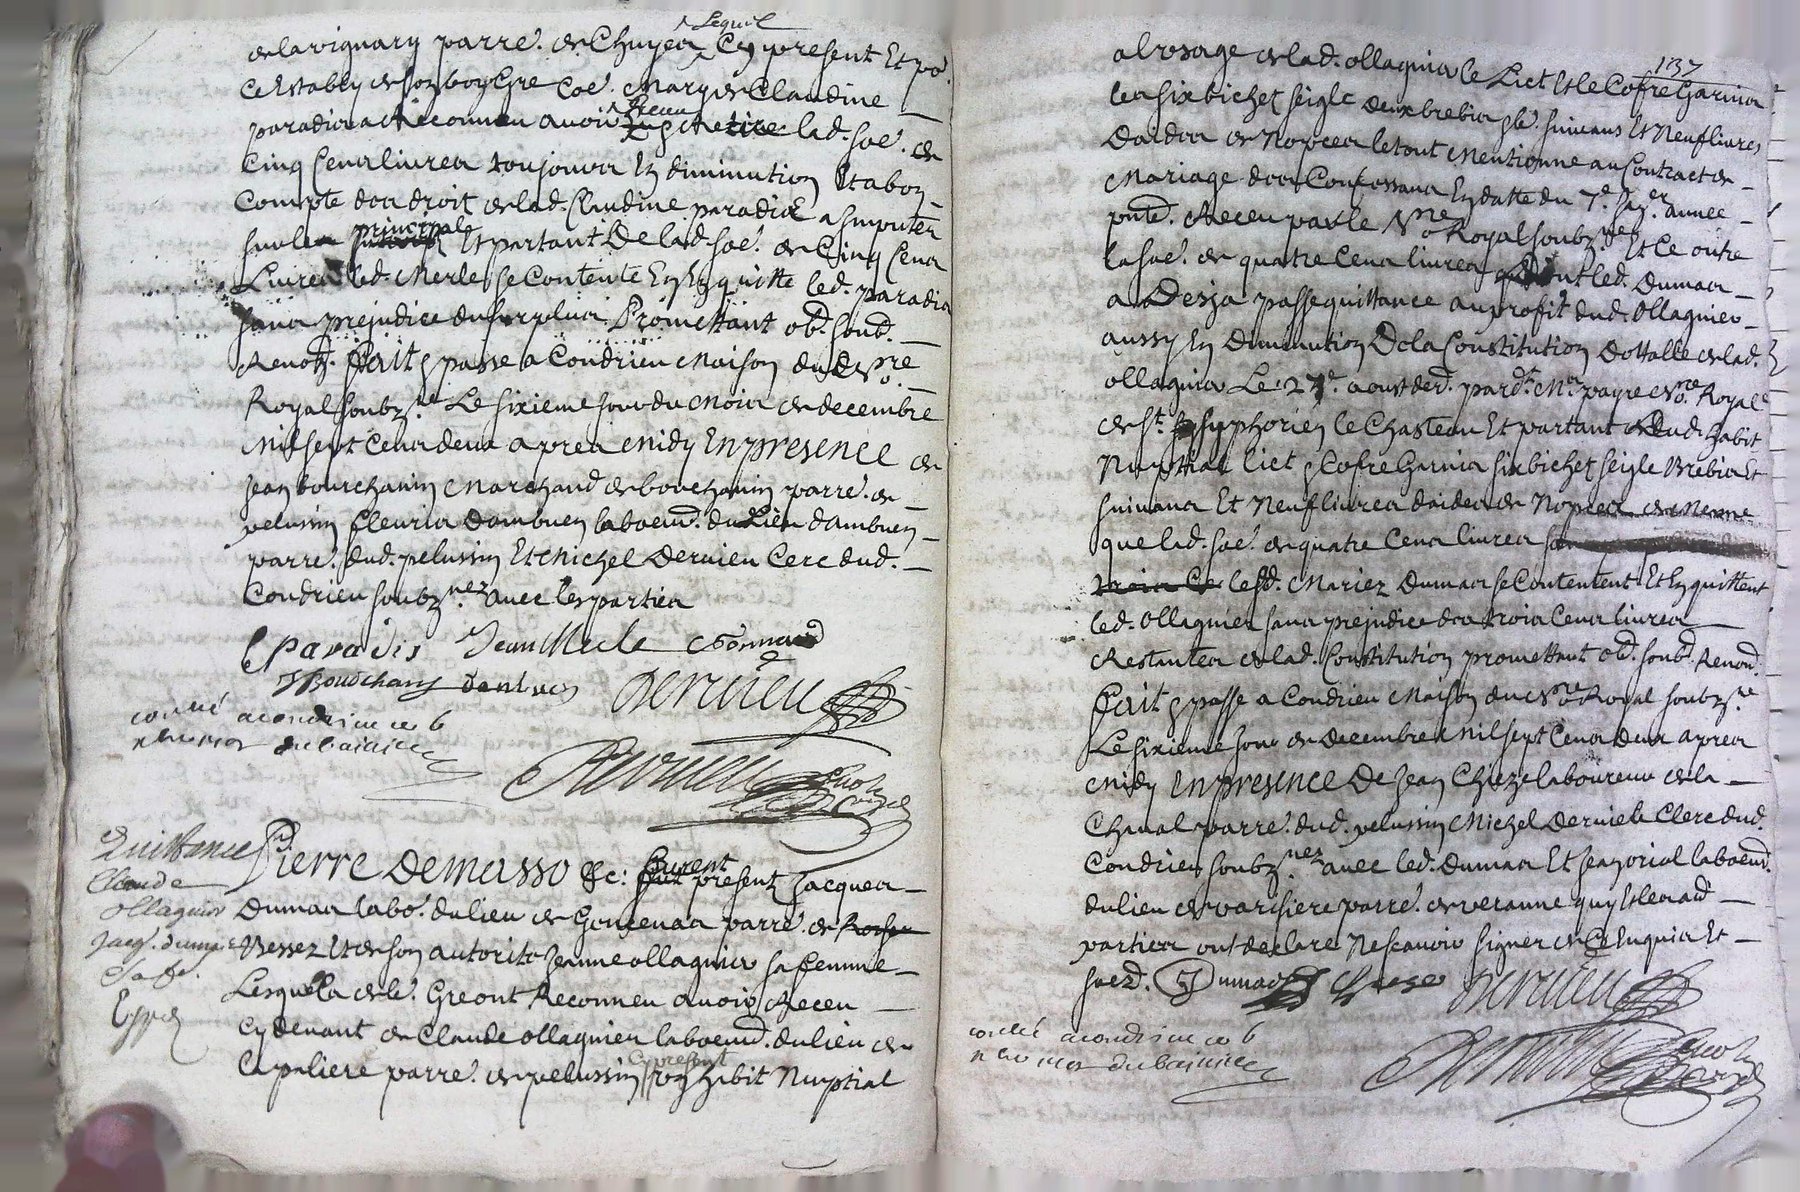 Lequel
de la vignary parre. de Chuyer Cy present Et po.
Ce Estably de son bon Gre Coe. Mary de Claudine
paradis a Reconneu avoir Receu lad. soe. de
Cinq Cens livres toujours En diminution Et a bon
Compte des droit de lad. Claudine paradis a Imputer
sur le principal Et partant De lad. soe. de Cinq Cens
Livres led. Merle se Contente En Quitte led. paradis
sans prejudice du surplus Promettant ob. soub.
Renon. Fait & passe a Condrieu Maison du No.re
Royal soubz.ne Le sixieme jour du Mois de decembre
Mil sept Cens deux apres Midy En presence de
Jean bourchanin Marchand de bourchanin parre. de
pelussin fleuris dambuen laboeur. du Lieu dambuen
parre. dud. pelussin Et Michel Dervieu Clerc dud.
Condrieu soubz.nez avec les parties
C Paradis Jean Merle
J Bourchany danbuen Dervieu
conllé a condrieu ce 6
Dervieu
Quittance
Claude
ollagnier
Jacq. dumas
Sa fe.
Expd
Pierre Demasso &c: furent present Jacques
Dumas labo. du lieu de parre. de
Bessez Et de son autorite Jeanne ollagnier sa femme
Lesquels de le. Gre ont Reconneu avoir Receu
Cy devant de Claude ollagnier laboeur. du lieu de
Capeliere parre. de pelussin Cy present un habit Nuptial
137
a l'usage de lad. ollagnier le Lict Et le Cofre Garnis
les six bichet seigle deux brebis & le. suivans Et Neuf livres
Daides de Nopces le tout Mentionne au Contract de
Mariage des Confessans En datte du 7.e Jan.er annee
pnte. Receu par le No.re Royal soubz.ne Et Ce outre
la soe. de quatre Cens livres dont led. Dumas
a Desja passe quittance au profit dud. Ollagnier
aussy En Diminution De la Constitution Dottalle de lad.
ollagnier Le 27.e aoust der. pard.t M.e payre No.re Royal
de St. simphorien le Chasteau Et partant dud. habit
Nuptial lict & Cofre Garnis six bichet seigle Brebis Et
suivans Et Neuf livres daides de Nopces de Mesme
que lad. soe. de quatre Cens livres
lesd. Mariez Dumas se Contentent Et En quittent
led. Ollagnier sans prejudice des trois Cens livres
Restantes de lad. Constitution promettant ob. soub. Renon.
Fait & passe a Condrieu Maison du No.re Royal soubz.ne
Le sixieme jour de decembre Mil sept Cens deux apres
Midy En presence De Jean Chieze laboureur de la
Chanal parre. dud. pelussin Michel Dervieu Clerc dud.
Condrieu soubz.nez avec led. Dumas Et Jean oriol laboeur.
du lieu de varisiere parre. de veranne quy Et les aud.
parties ont declare Ne scavoir signer de Ce Enquis Et
soed. J Dumas Chieze Dervieu
conllé a condrieu ce 6
Dervieu